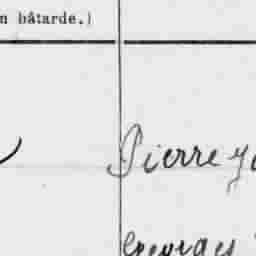 n bâtarde.)
Pierre
Georges